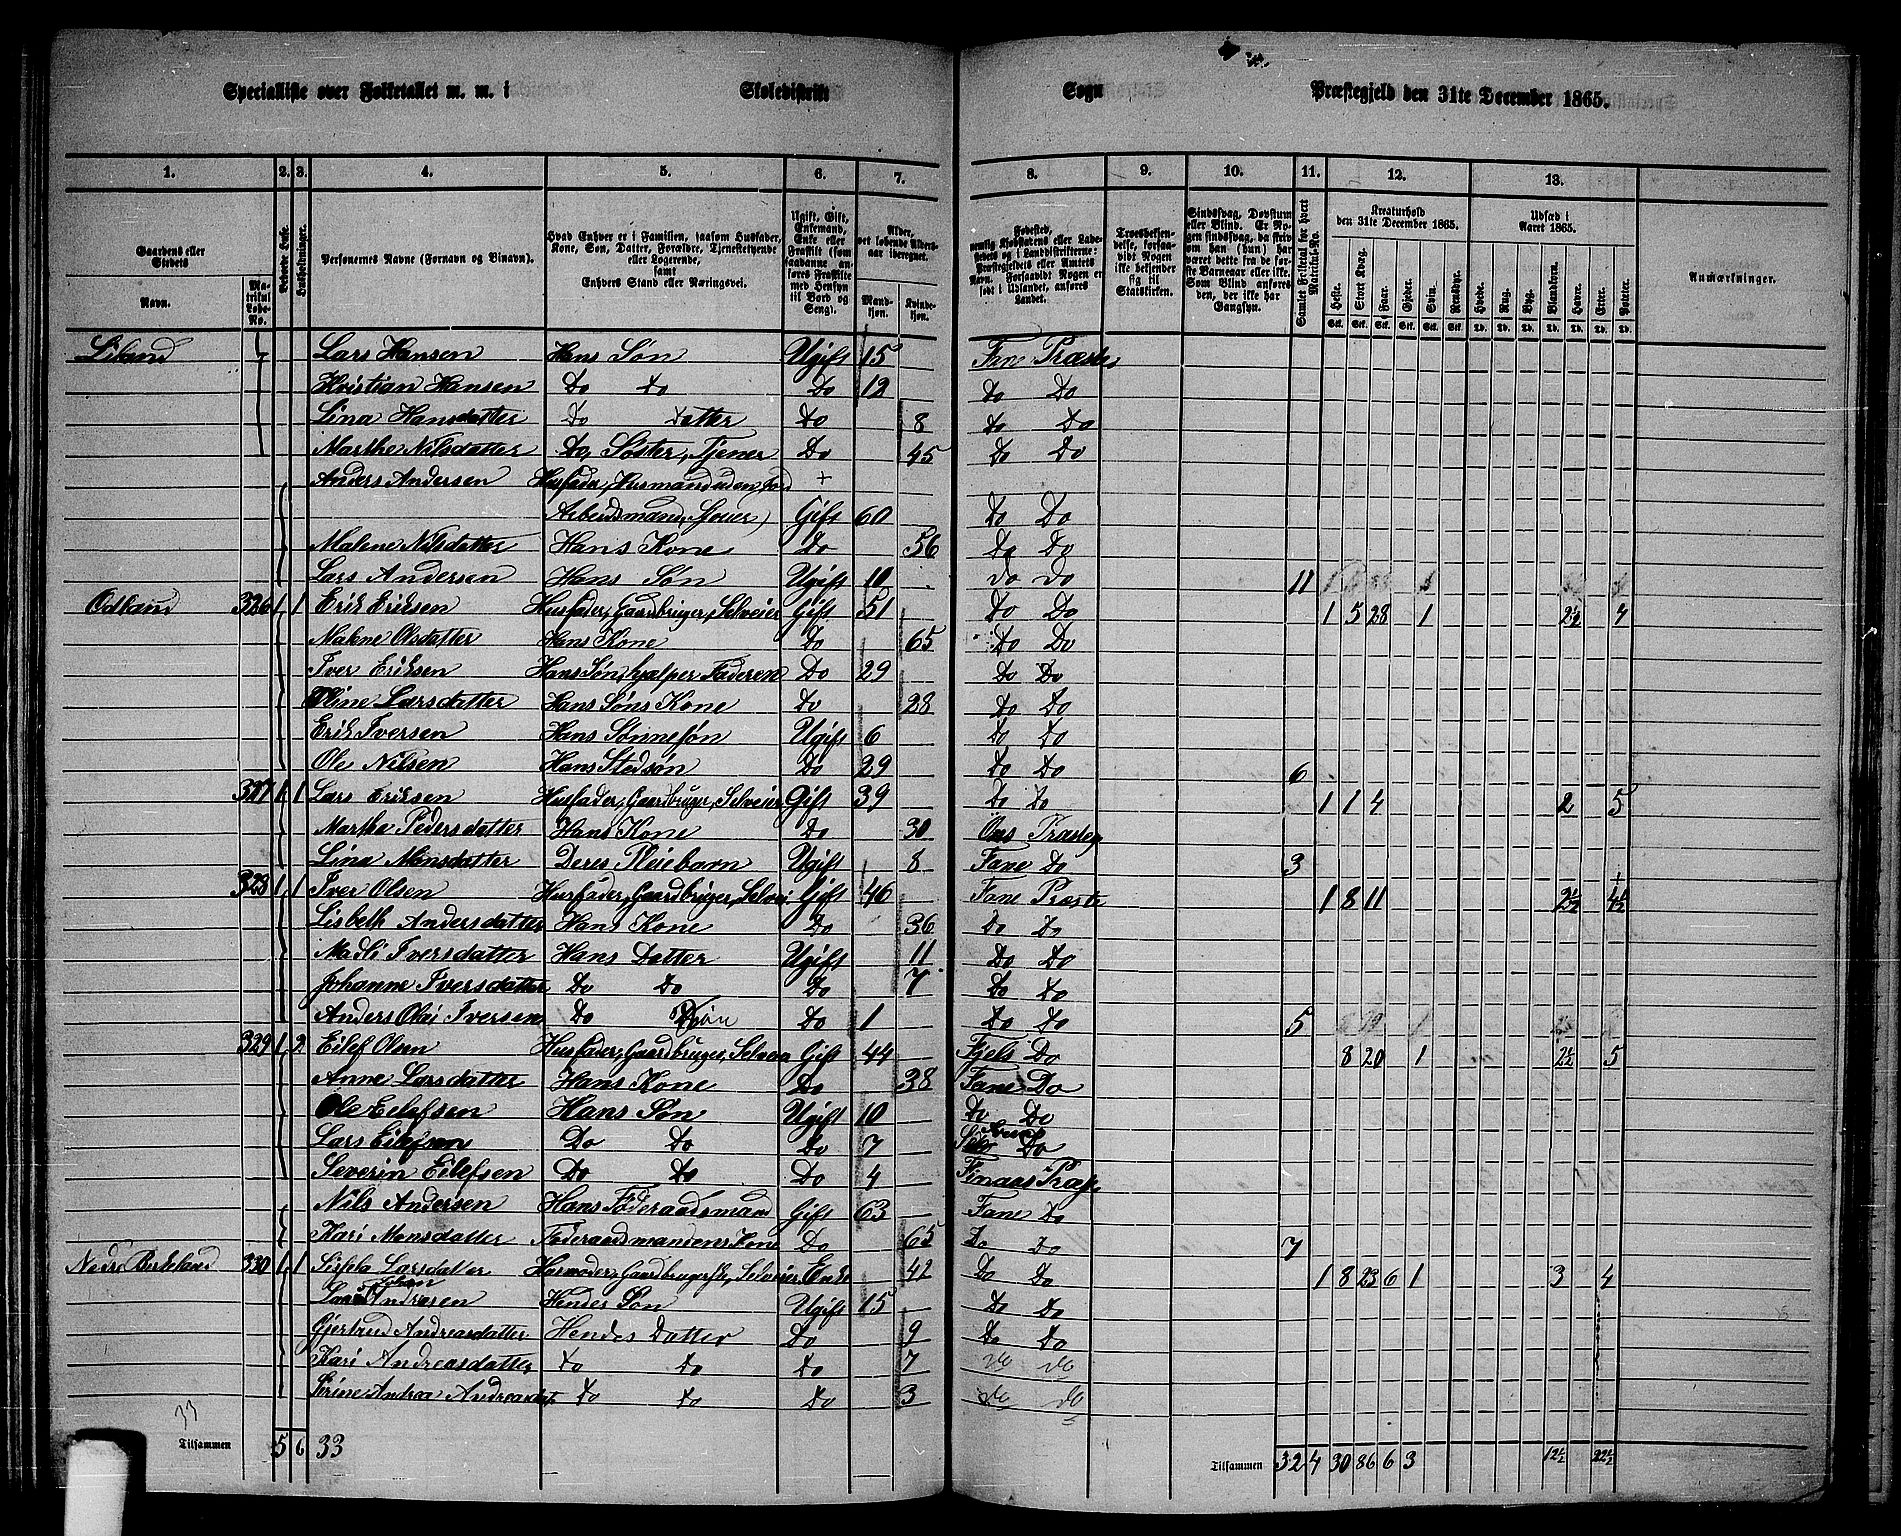 Specialliste over Folketallet m. m. i Skoledistrikt Sogn Præstegjeld den 31te December 1865.
1. 2. 3. 4. 5. 6. 7. 8. 9. 10. 11. 12. 13.
Gaardens eller Stedets
Navn. Matrikul Løbe-No.
Beboede Huse.
Husholdninger.
Personernes Navne (Fornavn og Binavn).
Hvad Enhver er i Familien, saasom Husfader, Kone, Søn, Datter, Forældre, Tjenestetyende eller Logerende, samt Enhvers Stand eller Næringsvei.
Ugift, Gift, Enkemand, Enke eller Fraskilt (som saadanne anføres Fraskilte med Hensyn til Bord og Seng).
Alder, det løbende Alders-aar iberegnet.
Mandkjøn. Kvindekjøn.
Fødested, nemlig Kjøbstadens eller Ladestedets og i Landdistrikterne: Præstegjeldets eller Amtets Navn. Forsaavidt Nogen er født i Udlandet, anføres Landet.
Troesbekjendelse, forsaavidt Nogen ikke bekjender sig til Statskirken.
Sindssvag, Døvstum eller Blind. Er Nogen sindssvag, da skrives om han (hun) har været dette fra de første Barneaar eller ikke. Som Blind anføres den, der ikke har Gangsyn.
Samlet Folketal for hvert Matrikul-No.
Kreaturhold den 31te December 1865.
Heste. Stort Kvæg. Faar. Gjeder. Svin. Rensdyr.
Udsæd i Aaret 1865.
Hvede. Rug. Byg. Blandkorn. Havre. Erter. Poteter.
Anmærkninger.
Liland 7 Lars Hansen Hans Søn Ugift 15 Fane Præste
Kristian Hansen Do Do Do 12 Do Do
Lina Hansdatter Do Datter Do 8 Do Do
Marthe Nilsdatter Do, Søster, Tjener Do 45 Do Do
Anders Andersen Husfader, Husmand uden Jord +
Arbeidsmand Gift 60 Do Do
Malene Nilsdatter Hans Kone Do 56 Do Do
Lars Andersen Hans Søn Ugift 10 do do 11
Odland 326 1 1 Erik Eriksen Husfader, Gaardbruger, Selveier Gift 51 Do Do 1 5 28 1 2½ 4
Malene Olsdatter Hans Kone Do 65 Do Do
Iver Eriksen Hans Søn, hjælper Faderen Do 29 Do Do
Oline Larsdatter Hans Søns Kone Do 28 Do Do
Erik Iversen Hans Sønnesøn Ugift 6 Do Do
Ole Nilsen Hans Stedsøn Do 29 Do Do 6
327 1 1 Lars Eriksen Husfader, Gaardbruger, Selveier Gift 39 Do Do 1 1 4 2 5
Marthe Pedersdatter Hans Kone Do 30 Præsteg
Lina Monsdatter Deres Pleiebarn Ugift 8 Fane Do 3
328 1 1 Iver Olsen Husfader, Gaardbruger, Selvei Gift 46 Fane Præste 1 8 11 2½ 4½
Lisbeth Andersdatter Hans Kone Do 36 Do Do
Madli Iversdatter Hans Datter Ugift 11 Do Do
Johanne Iversdatter Do Do Do 7 Do Do
Anders Olai Iversen Do Søn Do 1 Do Do 5
329 1 2 Eilef Olsen Husfader, Gaardbruger, Selveier Gift 44 Fjels Do 8 20 1 2½ 5
Anne Larsdatter Hans Kone Do 38 Fane Do
Ole Eilefsen Hans Søn Ugift 10 Do Do
Lars Eilefsen Do Do Do 7 Do
Severin Eilefsen Do Do Do 4 Finaas Præst
Nils Andersen Hans Føderaadsmand Gift 63 Fane Do
Kari Monsdatter Føderaadsmandens Kone Do 65 Do Do 7
Nedre Birkeland 330 1 1 Sissela Larsdatter Husmoder, Gaardbrugerske, Selveier Enke 42 Do Do 1 8 23 6 1 3 4
Lars Johan Andreasen Hendes Søn Ugift 15 Do Do
Gjertrud Andreasdatter Hendes Datter Do 9 Do Do
Kari Andreasdatter Do Do Do 7 do do
Serine Andrea Andreasdat Do Do Do 3 do do
33
Tilsammen 5 6 33
Tilsammen 32 4 30 86 6 3 12½ 22½